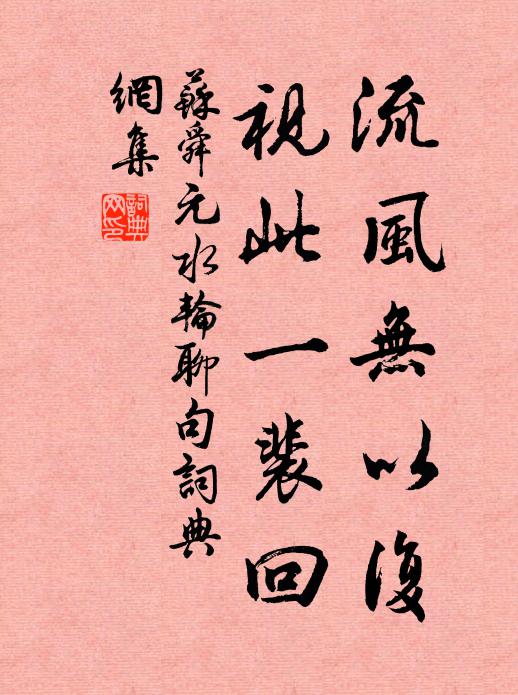 流風無以復
視此一裴回
蘇舜元水輪聊句詞典
網集
詞典
网印